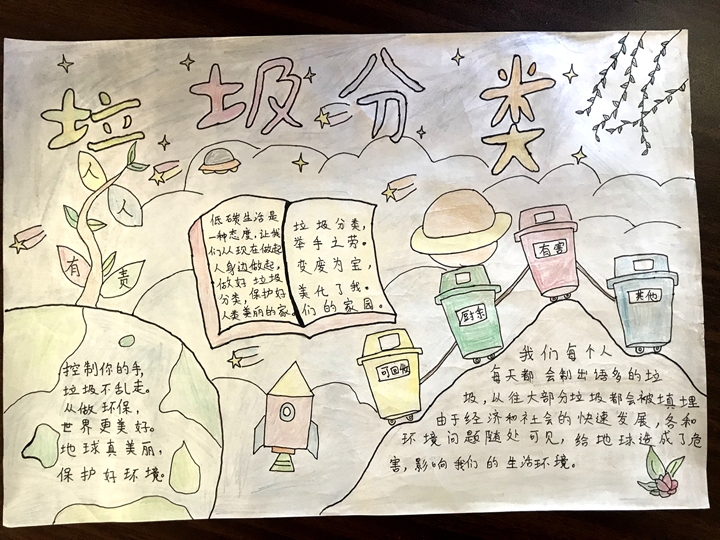 垃圾分类
人
人
有
责
低碳生活是
一种态度,让我
们从现在做起
人身边做起,
做好垃圾
分类,保护好
人类美丽的家
垃圾分类,
举手土劳。
变废为宝,
美化了我
们的家园。
有害
厨余
其他
可回收
控制你的手,
垃圾不乱走。
从做环保,
世界更美好。
地球真美丽,
保护好环境。
我们每个人
每天都会制出诸多的垃
圾,从往大部分垃圾都会被填埋
由于经济和社会的快速发展,各和
环境问题随处可见,给地球造成了危
害,影响我们的生活环境。